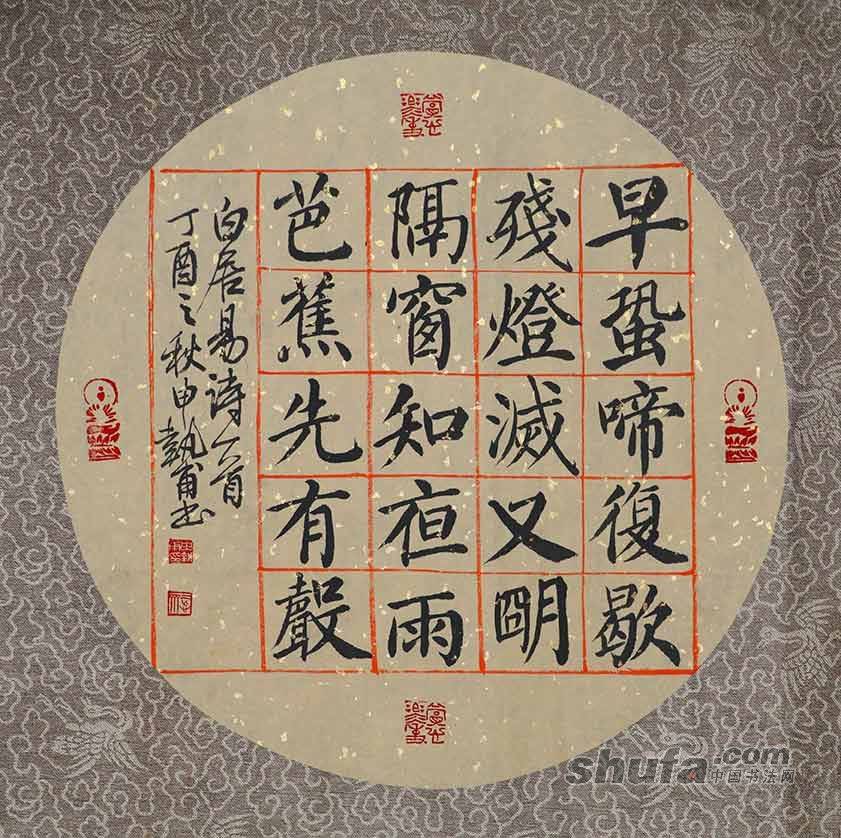 早蛩啼復歇
殘燈滅又朙
隔窗知亱雨
芭蕉先有聲
白居易诗一首
丁酉之秋申執甫书
shufa.com
中国书法网